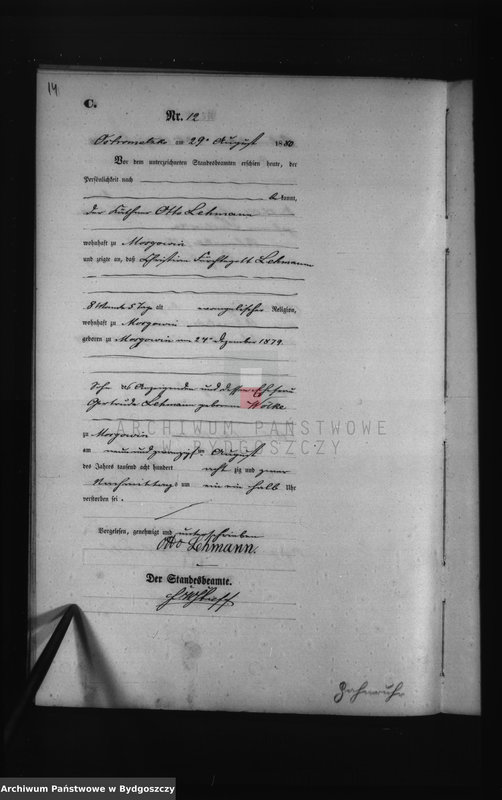 14
C.
Nr. 12
Ostrometzko am 29ᵗ August 1880
Vor dem unterzeichneten Standesbeamten erschien heute, der
Persönlichkeit nach
be kannt,
der Käthner Otto Lehmann
wohnhaft zu Mozgowin
und zeigte an, daß Christian Fürchtegott Lehmann
8 Monate 5 Tage alt evangelischer Religion,
wohnhaft zu Mozgowin
geboren zu Mozgowin am 24ᵗ Dezember 1879.
Sohn des Anzeigenden und dessen Ehefrau
Gertrude Lehmann geborene Wölke
zu Mozgowin
am neun und zwanzigsten August
des Jahres tausend acht hundert acht zig und zwar
Nachmittags um ein ein halb Uhr
verstorben sei.
Vorgelesen, genehmigt und unterschrieben
Otto Lehmann.
Der Standesbeamte.
Zahnruhr
ARCHIWUM PAŃSTWOWE
W BYDGOSZCZY
Archiwum Państwowe w Bydgoszczy